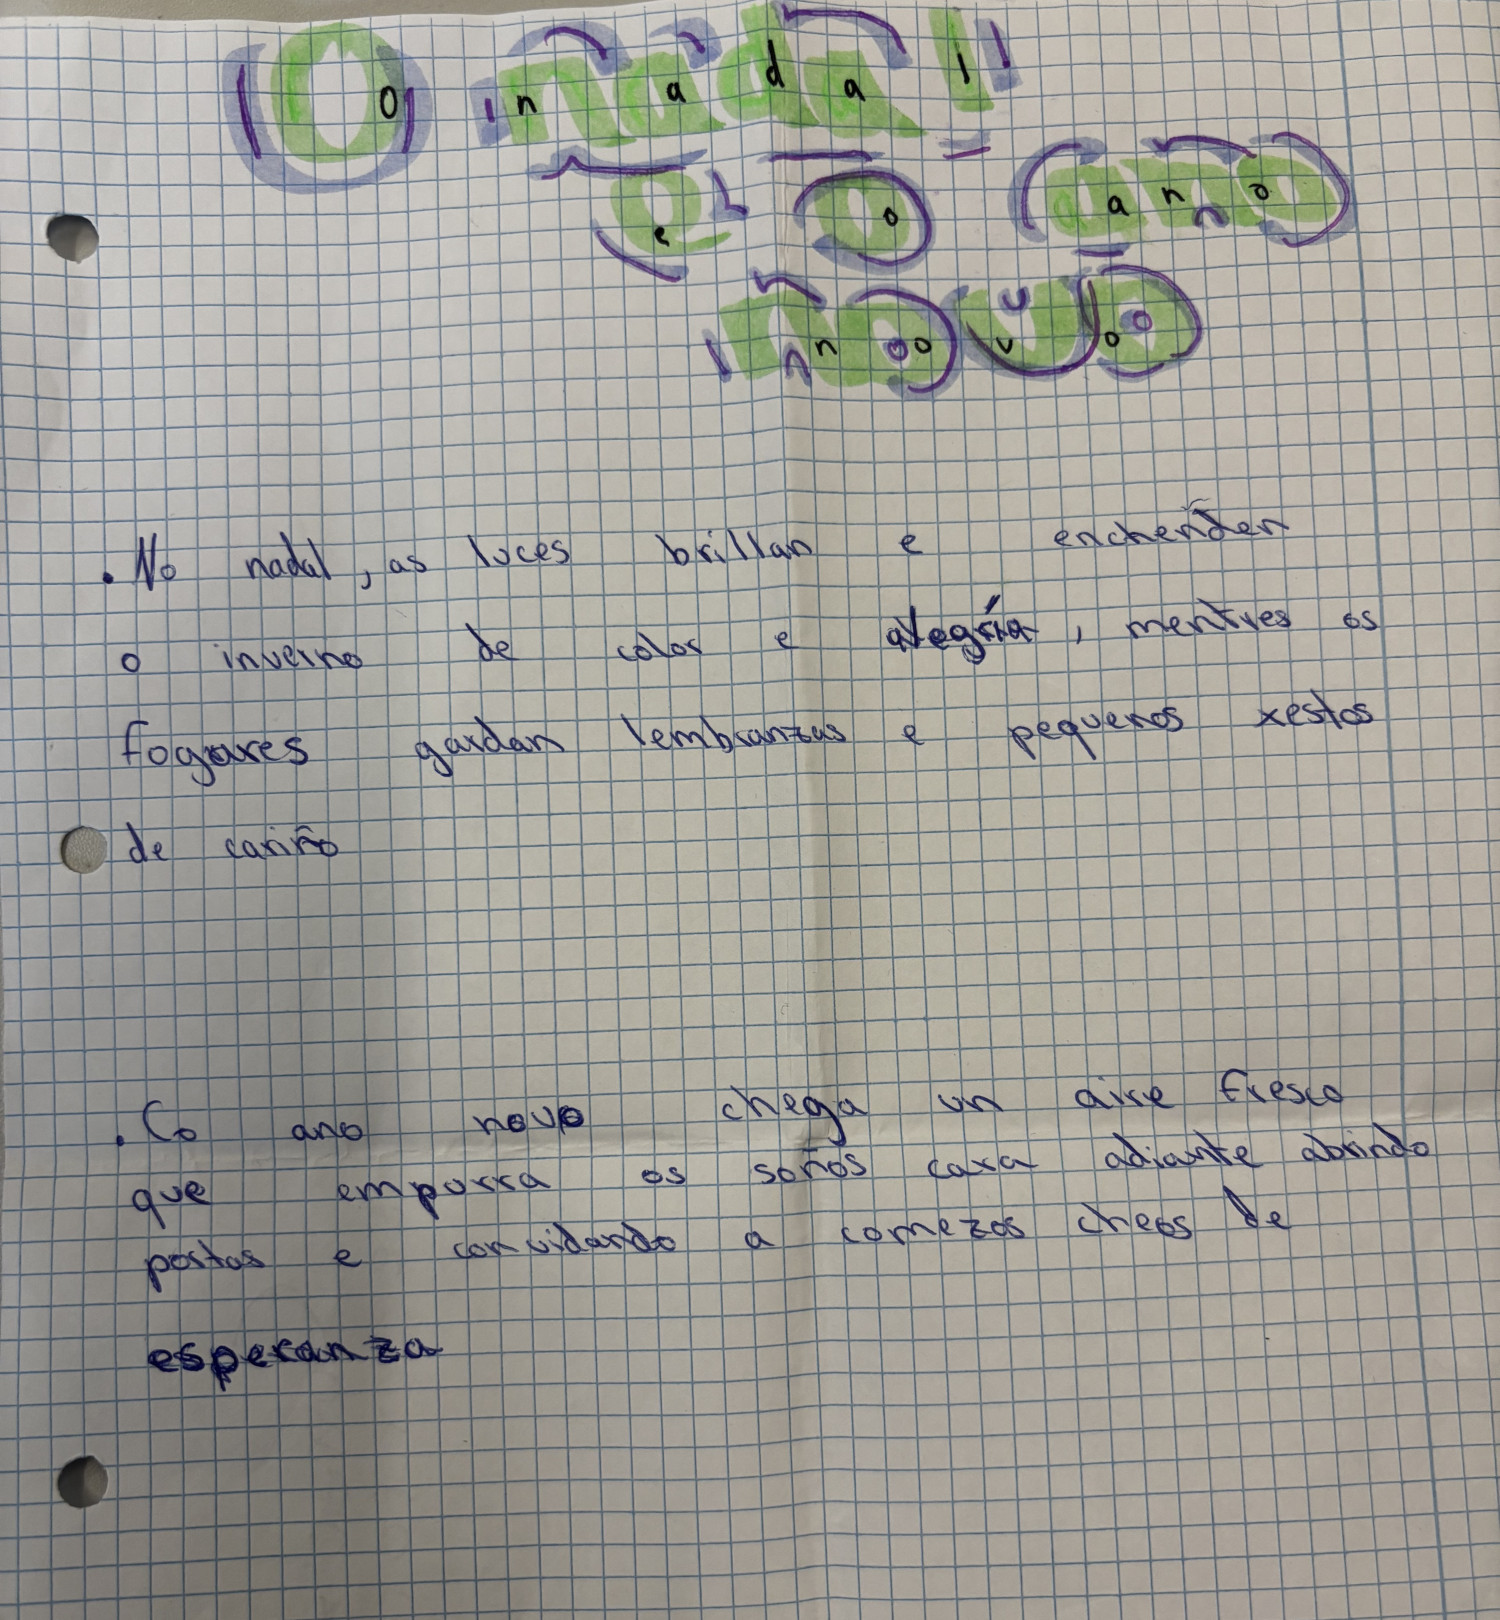 O nadal
e o ano
novo
. No nadal, as luces brillan e encheñden
o inverno de color e alegría, mentres os
fogares gardan lembranzas e pequenos xestos
de cariño
. Co ano novo chega un aire fresco
que empurra os soños cara adiante abrindo
portas e convidando a comezos cheos de
esperanza